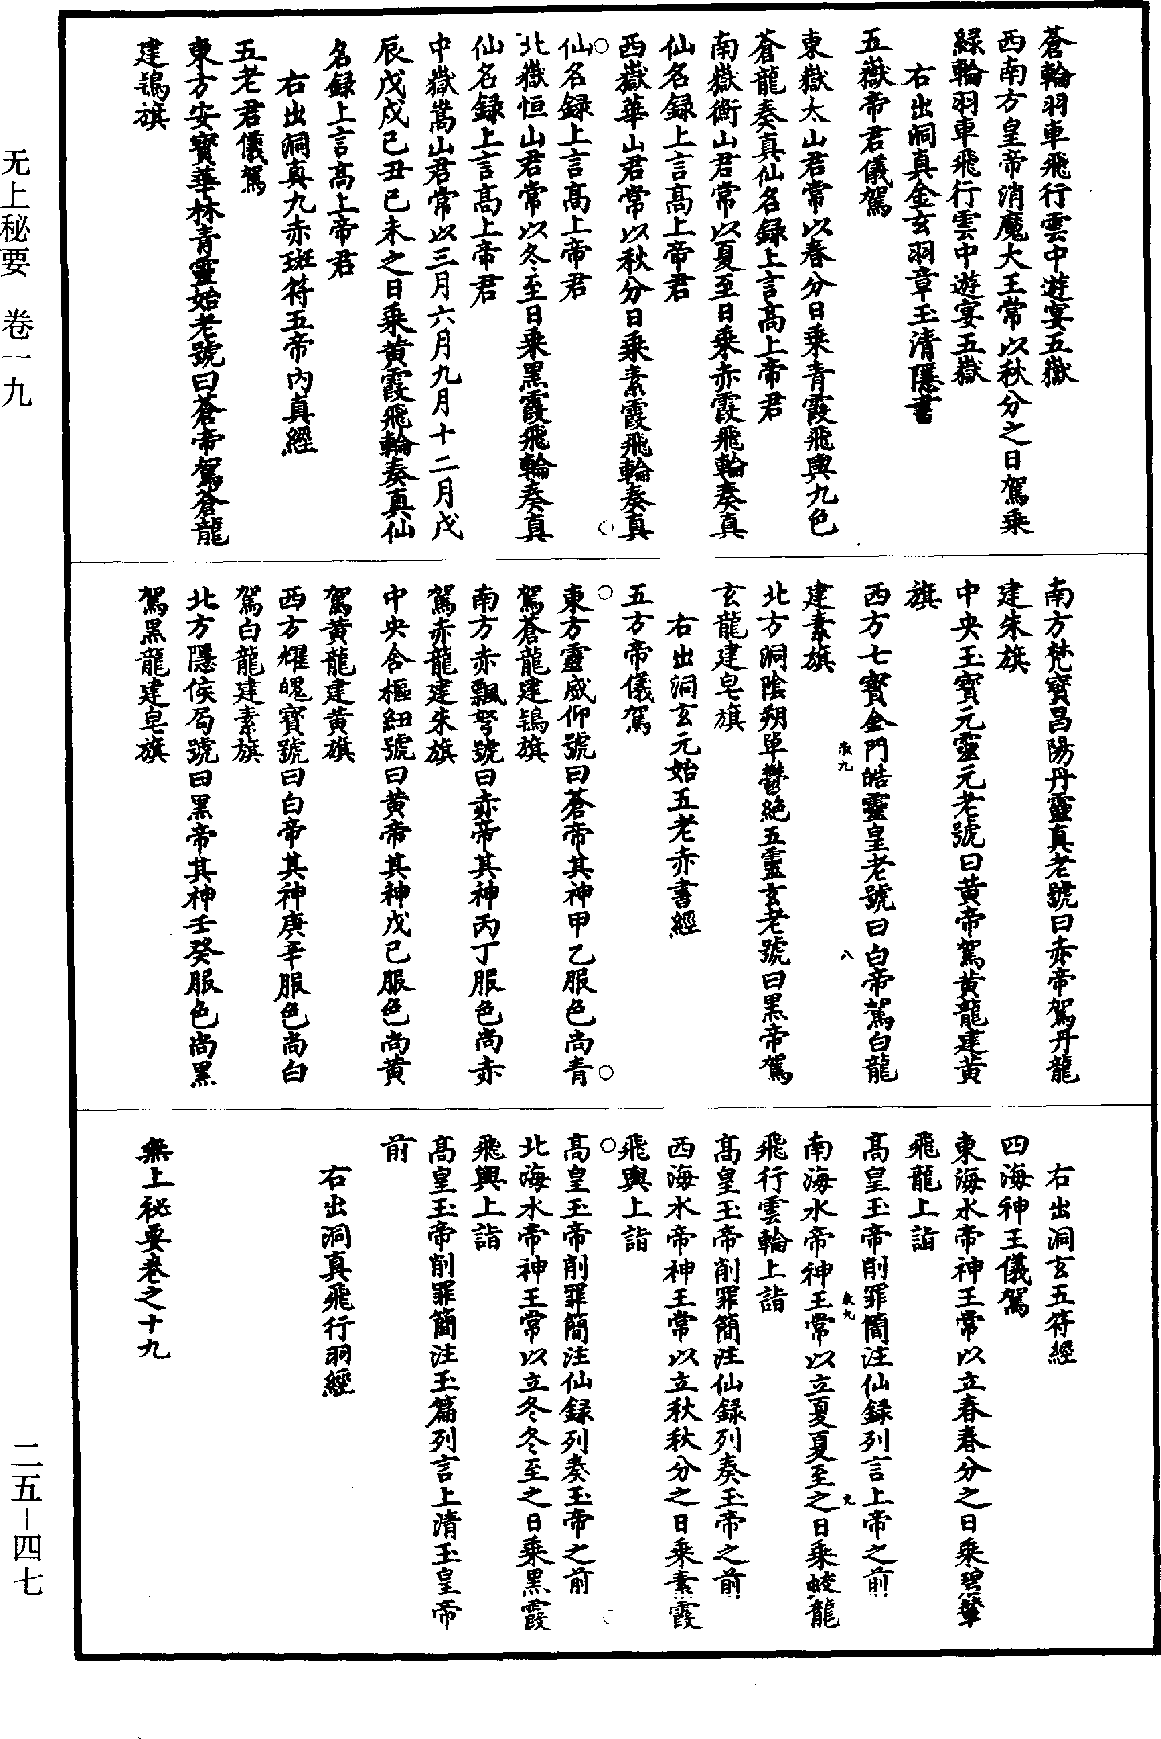 蒼輪羽車飛行雲中遊宴五嶽
西南方皇帝消魔大王常以秋分之日駕乘
綠輪羽車飛行雲中遊宴五嶽
右出洞真金玄羽章玉清隱書
五嶽帝君儀駕
東嶽太山君常以春分日乘青霞飛輿九色
蒼龍奏真仙名録上言高上帝君
南嶽衡山君常以夏至日乘赤霞飛輪奏真
仙名録上言高上帝君
西嶽華山君常以秋分日乘素霞飛輪奏真
仙名録上言高上帝君
北嶽恒山君常以冬至日乘黑霞飛輪奏真
仙名録上言高上帝君
中嶽嵩山君常以三月六月九月十二月戊
辰戊戌己丑己未之日乘黄霞飛輪奏真仙
名録上言高上帝君
右出洞真九赤斑符五帝內真經
五老君儀駕
東方安寶華林青靈始老號曰蒼帝駕蒼龍
建鶉旗
南方梵寶昌陽丹靈真老號曰赤帝駕丹龍
建朱旗
中央玉寶元靈元老號曰黄帝駕黄龍建黄
旗
西方七寶金門皓靈皇老號曰白帝駕白龍
建素旗
北方洞陰朔單鬱絶五靈玄老號曰黑帝駕
玄龍建皂旗
右出洞玄元始五老赤書經
五方帝儀駕
東方靈威仰號曰蒼帝其神甲乙服色尚青
駕蒼龍建鶉旗
南方赤飄弩號曰赤帝其神丙丁服色尚赤
駕赤龍建朱旗
中央含樞紐號曰黄帝其神戊己服色尚黄
駕黄龍建黄旗
西方耀魄寶號曰白帝其神庚辛服色尚白
駕白龍建素旗
北方隱侯局號曰黑帝其神壬癸服色尚黑
駕黑龍建皂旗
右出洞玄五符經
四海神王儀駕
東海水帝神王常以立春春分之日乘碧輦
飛龍上詣
高皇玉帝削罪簡注仙録列言上帝之前
南海水帝神王常以立夏夏至之日乘蛟龍
飛行雲輪上詣
高皇玉帝削罪簡注仙録列奏玉帝之前
西海水帝神王常以立秋秋分之日乘素霞
飛輿上詣
高皇玉帝削罪簡注仙録列奏玉帝之前
北海水帝神王常以立冬冬至之日乘黑霞
飛輿上詣
高皇玉帝削罪簡注玉篇列言上清玉皇帝
前
右出洞真飛行羽經
無上秘要卷之十九
无上秘要　卷一九
二五－四七